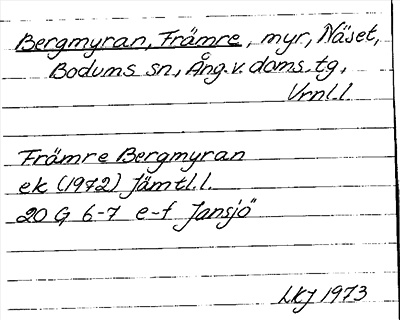 Bergmyran, Främre, myr, Näset,
Bodums sn, Ång. v. doms. tg,
Vrnl.l
Främre Bergmyran
ek (1972) Jämtl.l.
20 G 6-7 e-f Jansjö
LKJ 1973